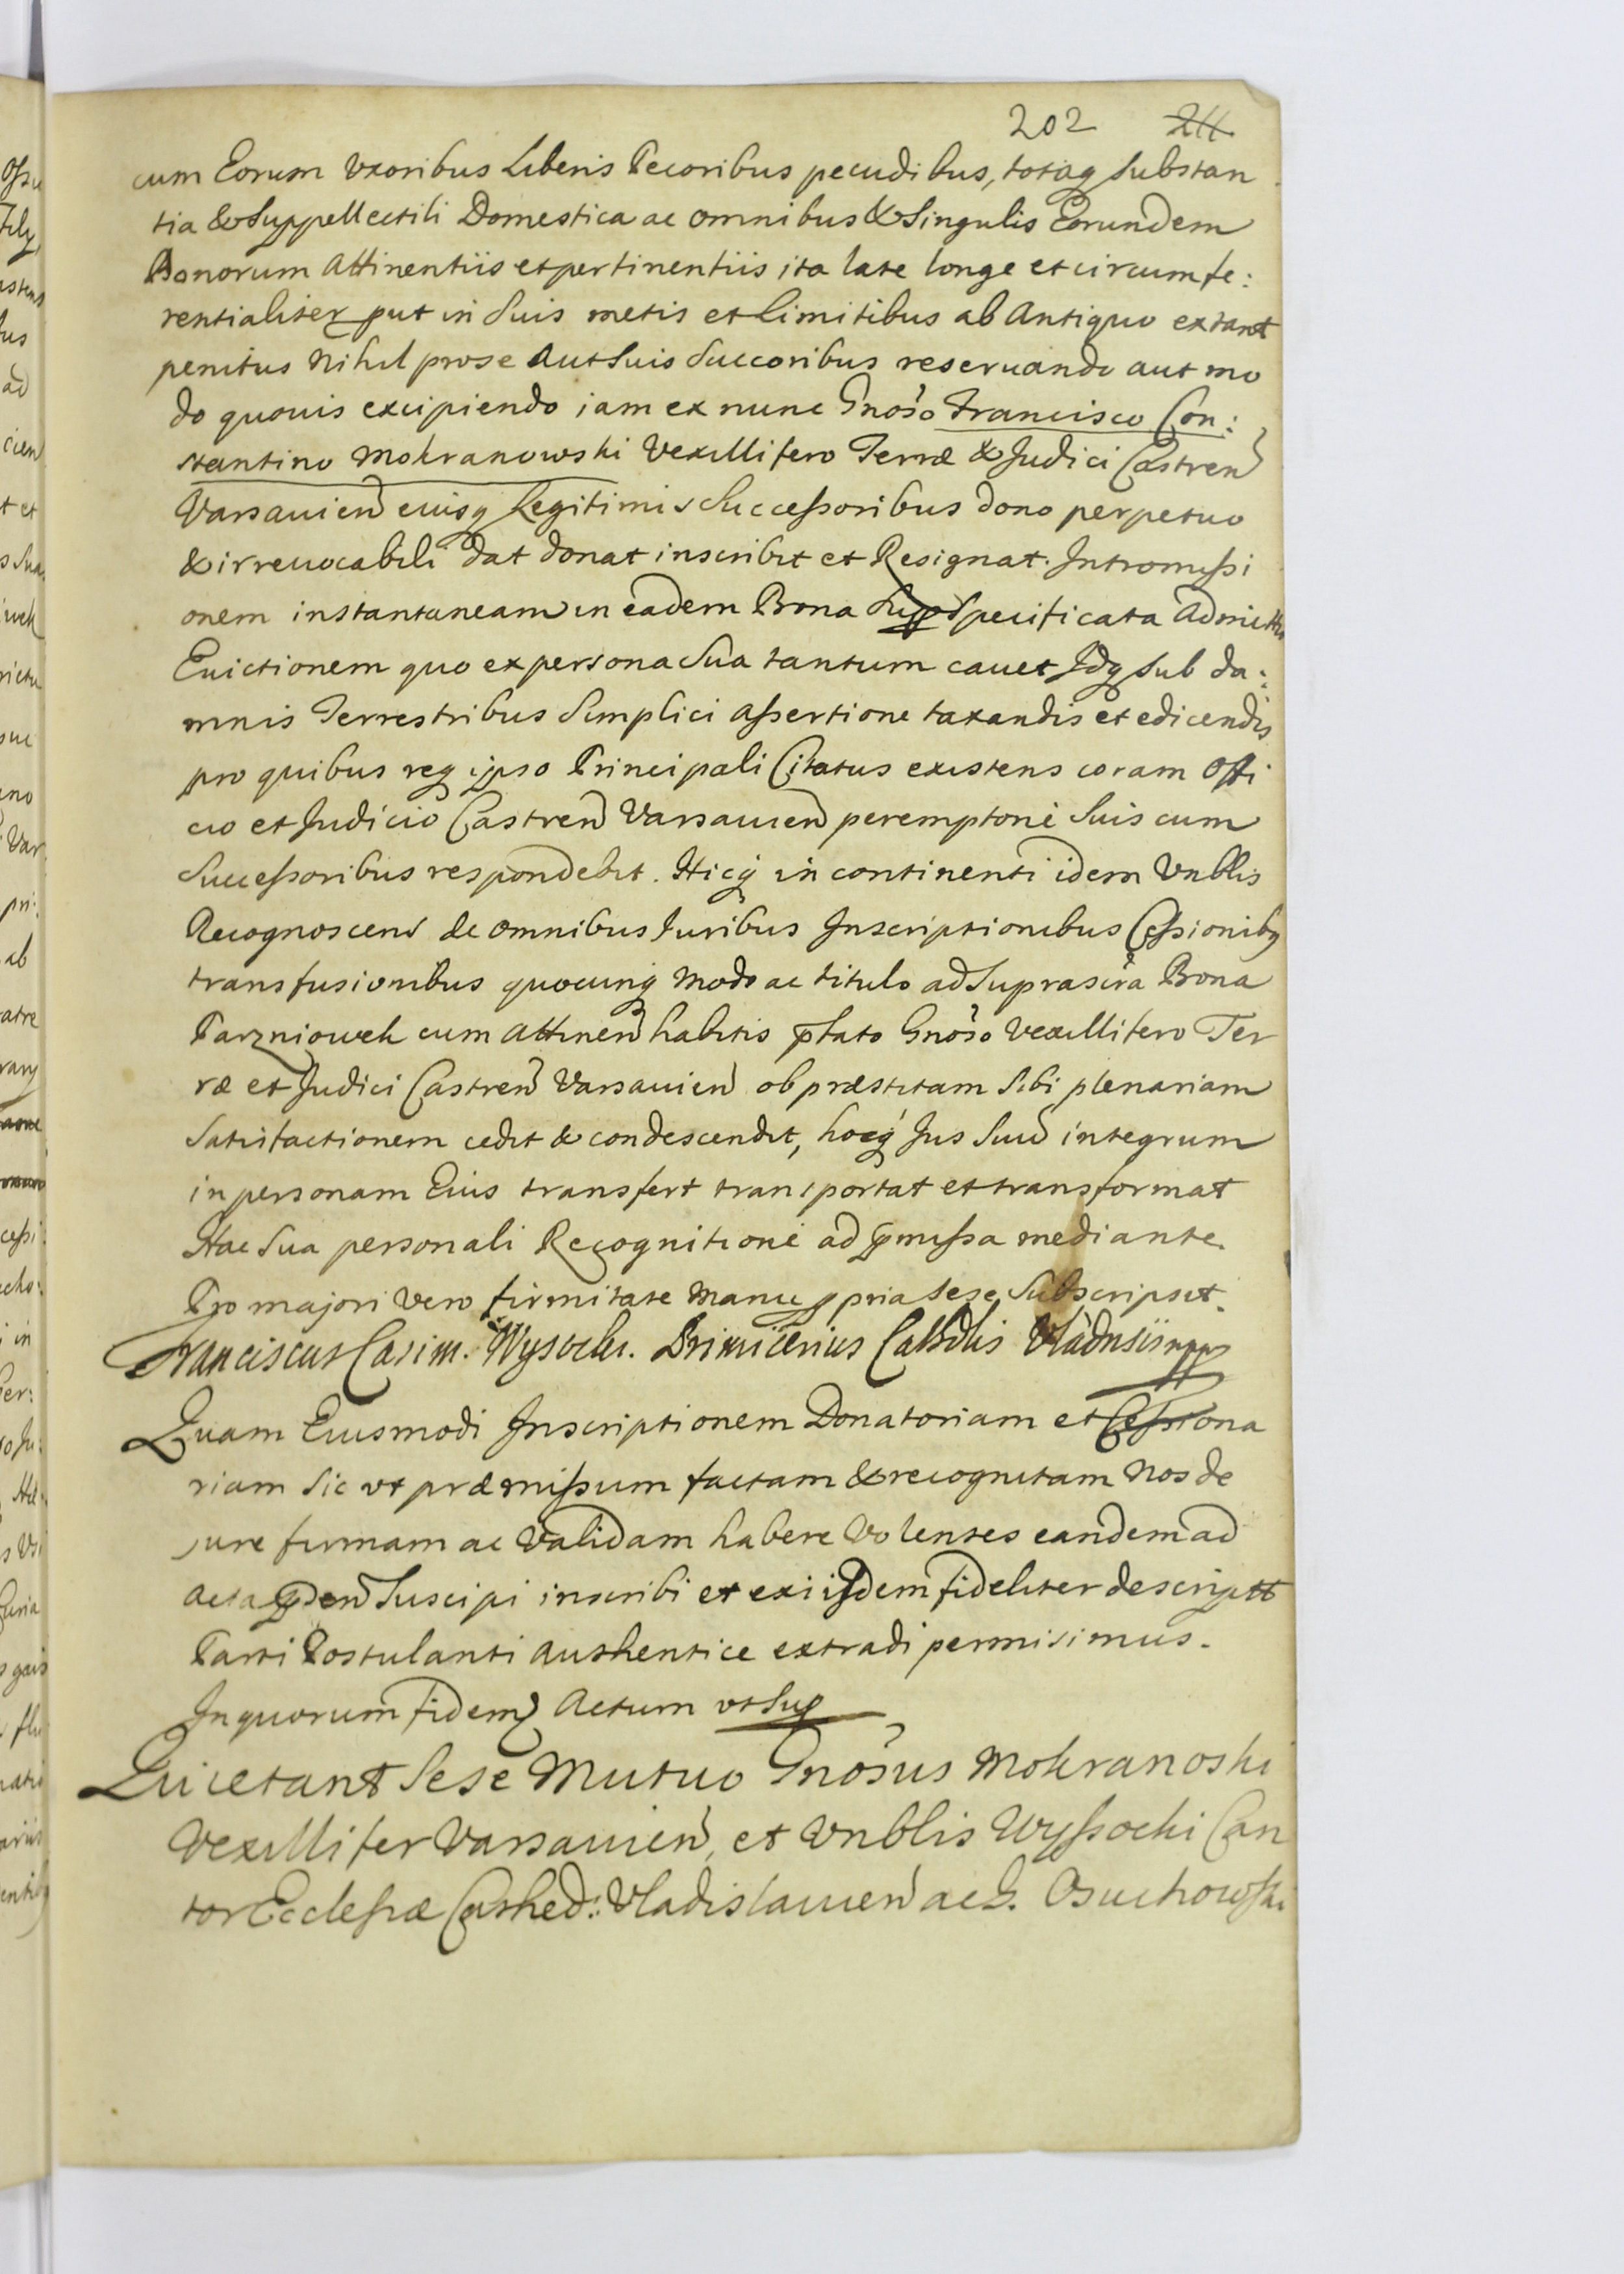 202 211
cum Eorum Vxoribus Liberis Pecoribus pecudibus, totaq substan
tia & Suppellectili Domestica ac omnibus & Singulis Eorundem
Bonorum Attinentiis et pertinentiis ita late longe et circumfe:
rentialiter put in Suis metis et Limitibus ab Antiquo extant
penitus Nihil pro se Aut Suis Succoribus reseruando aut mo
do quouis excipiendo iam ex nunc Gnoso Francisco Con:
stantino Mokranowski Vexillifero Terræ & Judici Castren
Varsauien eiusq Legitimis Successoribus dono perpetuo
& irreuocabili dat donat inscribit et Resignat. Intromissi
onem instantaneam in eadem Bona Supp Specificata Admittit
Euictionem quo ex persona Sua tantum cauet Idq sub da:
mnis Terrestribus Simplici assertione taxandis et edicendis
pro quibus req ipso Principali Citatus existens coram Offi
cio et Judicio Castren Varsauien peremptorie Suis cum
Successoribus respondebit. Hicq in continenti idem Vnblis
Recognoscens de omnibus Iuribus Inscriptionibus Cessionibq
transfusionibus quocunq modo ac titulo ad Suprascra Bona
Parzniowek cum attinen habitis ptato Gnoso Vexillifero Ter
ræ et Judici Castren Varsauien ob præstitam Sibi plenariam
Satisfactionem cedit & condescendit, hocq Jus Suu integrum
in personam Eius transfert transportat et transformat
Hac Sua personali Recognitione ad pmissa mediante.
Pro majori Vero firmitate Manu ppria Sese Subscripsit.
Franciscus Casim. Wysocki. Primicerius Cathdlis Vladnsis mpp
Quam Eiusmodi Inscriptionem Donatoriam et Cessiona
riam Sic vt præmissum factam & recognitam Nos de
jure firmam ac Validam habere Volentes eandem ad
acta pden Suscipi inscribi et ex iisdem fideliter descriptt
Parti Postulanti Authentice extradi permisimus.
In quorum fidem Actum vt Sup
Quietant Sese Mutuo Gnosus Mokranoski
Vexillifer Varsauien, et Vnblis Wyssocki Can
tor Ecclesiæ Cathed: Vladislauien ac G. Osuchowski